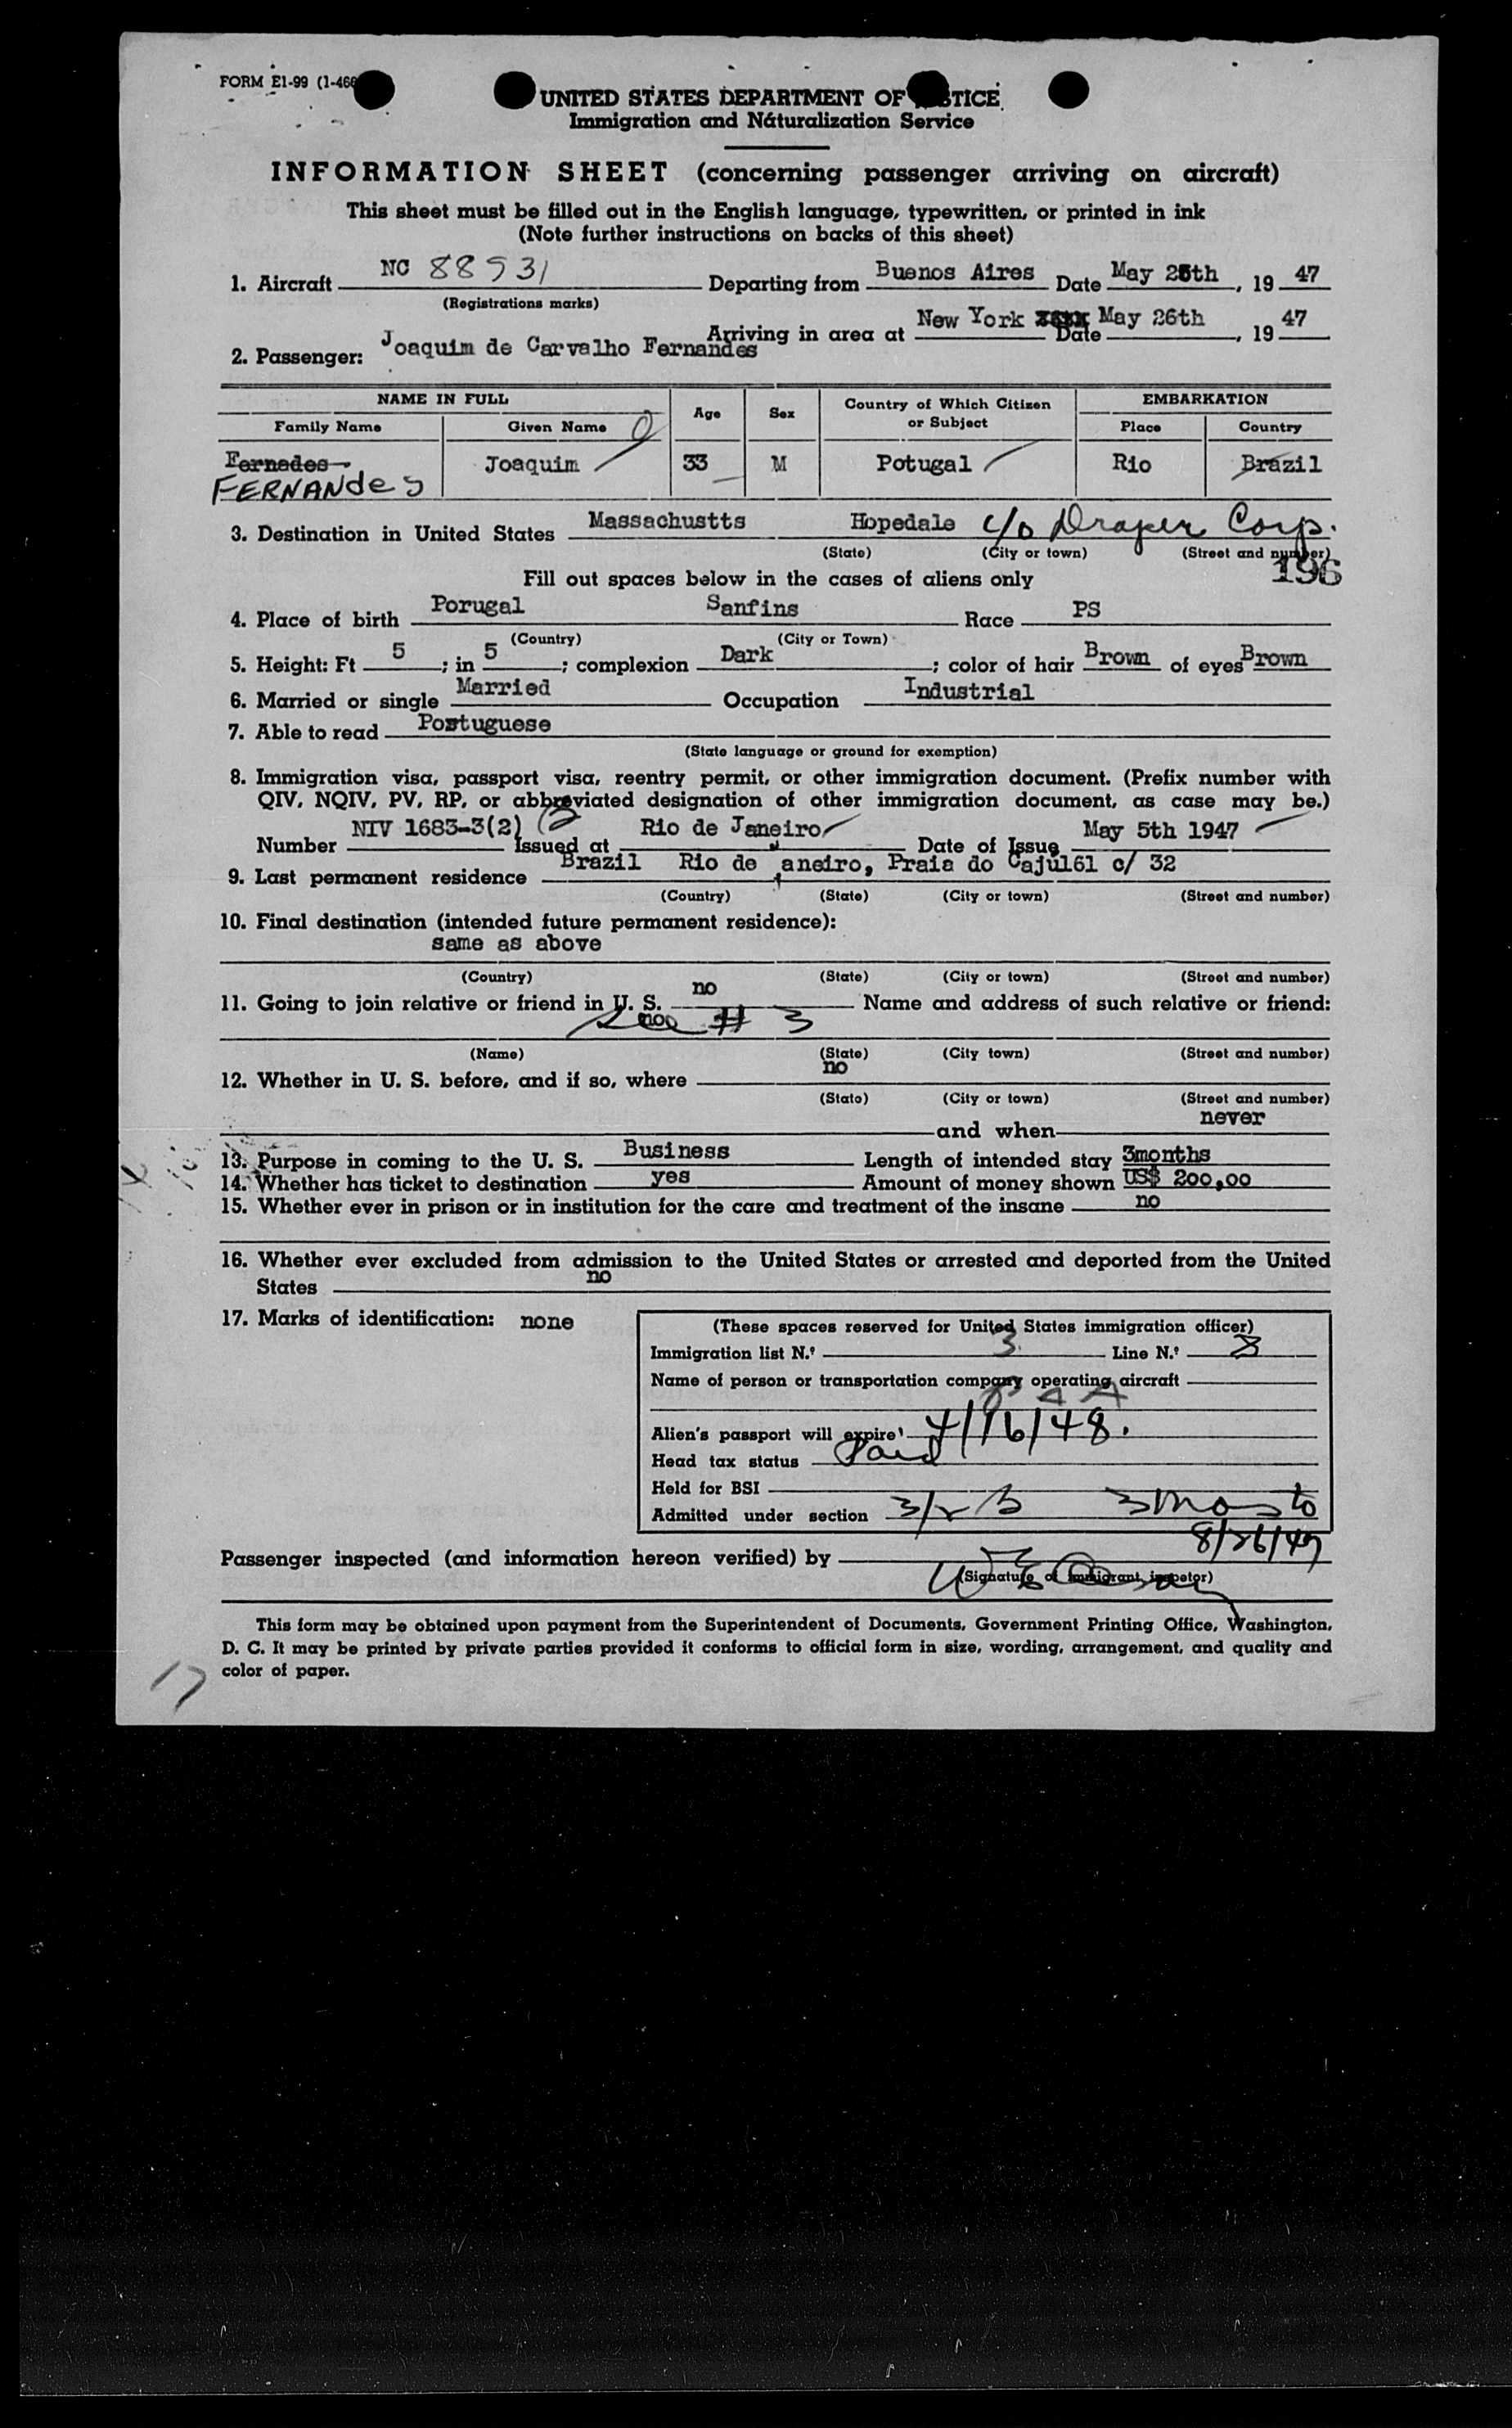 FORM E1-99 (1-46
UNITED STATES DEPARTMENT OF JUSTICE
Immigration and Naturalization Service
INFORMATION SHEET (concerning passenger arriving on aircraft)
This sheet must be filled out in the English language, typewritten, or printed in ink
(Note further instructions on backs of this sheet)
1. Aircraft NC 88931 Departing from Buenos Aires Date May 25th, 19 47
(Registrations marks)
Arriving in area at New York Date May 26th, 19 47
2. Passenger: Joaquim de Carvalho Fernandes
NAME IN FULL Age Sex Country of Which Citizen or Subject EMBARKATION
Family Name Given Name Place Country
Fernades Joaquim 33 M Potugal Rio Brazil
FERNANdes
3. Destination in United States Massachustts Hopedale c/o Draper Corp.
(State) (City or town) (Street and number)
196
Fill out spaces below in the cases of aliens only
4. Place of birth Porugal Sanfins Race PS
(Country) (City or Town)
5. Height: Ft 5; in 5; complexion Dark; color of hair Brown of eyes Brown
6. Married or single Married Occupation Industrial
7. Able to read Postuguese
(State language or ground for exemption)
8. Immigration visa, passport visa, reentry permit, or other immigration document. (Prefix number with
QIV, NQIV, PV, RP, or abbreviated designation of other immigration document, as case may be.)
Number NIV 1683-3(2) Issued at Rio de Janeiro Date of Issue May 5th 1947
9. Last permanent residence Brazil Rio de Janeiro, Praia do Cajú161 c/ 32
(Country) (State) (City or town) (Street and number)
10. Final destination (intended future permanent residence):
same as above
(Country) (State) (City or town) (Street and number)
11. Going to join relative or friend in U. S. no Name and address of such relative or friend:
no See # 3
(Name) (State) (City town) (Street and number)
12. Whether in U. S. before, and if so, where no
(State) (City or town) (Street and number)
and when never
13. Purpose in coming to the U. S. Business Length of intended stay 3months
14. Whether has ticket to destination yes Amount of money shown US$ 200,00
15. Whether ever in prison or in institution for the care and treatment of the insane no
16. Whether ever excluded from admission to the United States or arrested and deported from the United
States no
17. Marks of identification: none
(These spaces reserved for United States immigration officer)
Immigration list N.º 3 Line N.º 8
Name of person or transportation company operating aircraft
P A A
Alien's passport will expire 4/16/48.
Head tax status Paid
Held for BSI
Admitted under section 3/2 B 3 mos to
8/26/47
Passenger inspected (and information hereon verified) by
(Signature of immigrant inspetor)
This form may be obtained upon payment from the Superintendent of Documents, Government Printing Office, Washington,
D. C. It may be printed by private parties provided it conforms to official form in size, wording, arrangement, and quality and
color of paper.
17